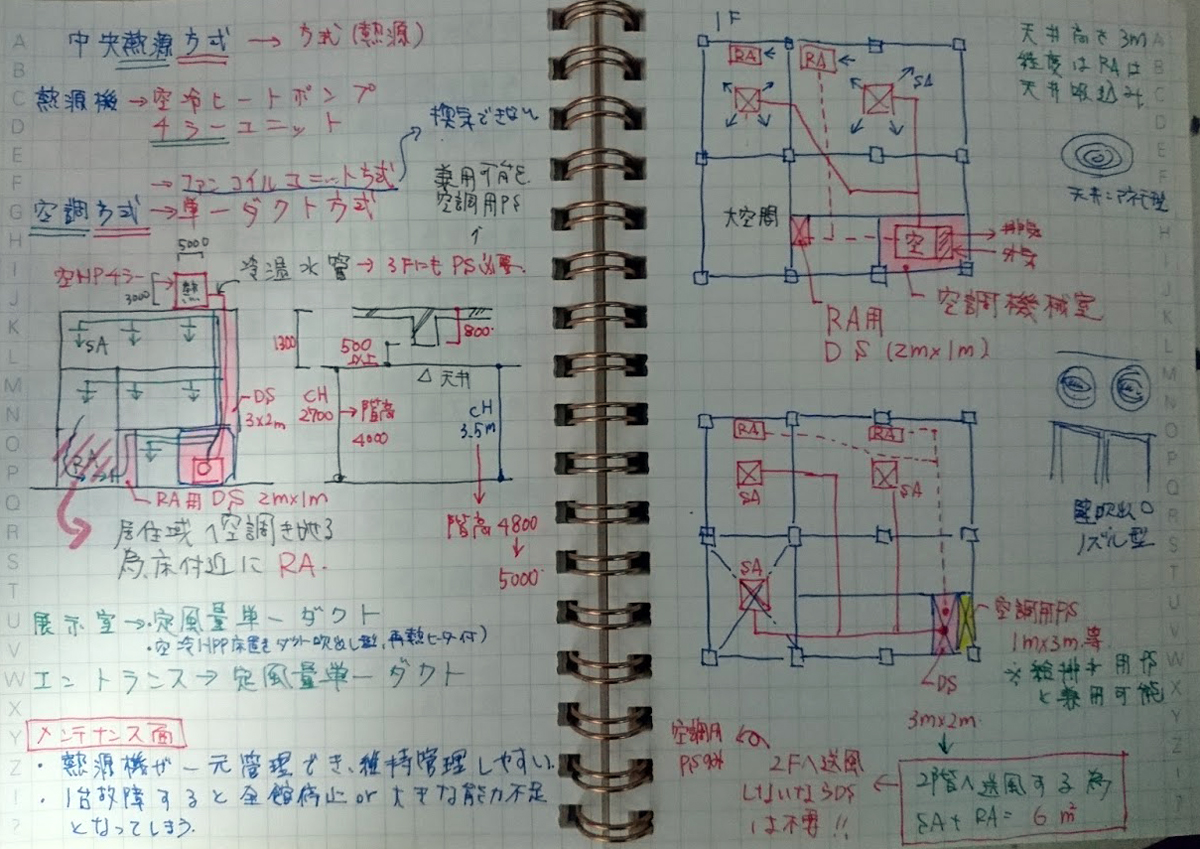 中央熱源方式 → 方式(熱源)
熱源機 → 空冷ヒートポンプ
チラーユニット
換気できない
→ ファンコイルユニット方式
空調方式 → 単一ダクト方式
兼用可能な
空調用PS
5000
空HPチラー
3000
熱
冷温水管 → 3FにもPS必要
SA
1300
500
以上
800
△天井
DS
3×2m
CH
2700
→ 階高
4000
CH
3.5m
RA
RA用 DS 2m×1m
居住域へ空調き
為、床付近に RA.
階高 4800
↓
5000
展示室 → 定風量単一ダクト
・空冷HPP床置きダクト吹出し型, 再熱ヒーター付)
エントランス → 定風量単一ダクト
メンテナンス面
・熱源機が一元管理でき、維持管理しやすい.
・1台故障すると全館停止 or 大きな能力不足
となってしまう.
1F
RA
RA
SA
天井高さ3m
程度はRAは
天井吸込み
天井:アネモ型
大空間
空
排気
外気
空調機械室
RA用
DS (2m×1m)
RA
RA
SA
SA
SA
壁吹出口
ノズル型
空調用PS
1m×3m.等.
※給排水用PS
と兼用可能
DS
3m×2m.
空調用
2Fへ送風
しないならDS
は不要!!
2階へ送風する為
SA+RA= 6 m²
A
B
C
D
E
F
G
H
I
J
K
L
M
N
O
P
Q
R
S
T
U
V
W
X
Y
Z
!
?